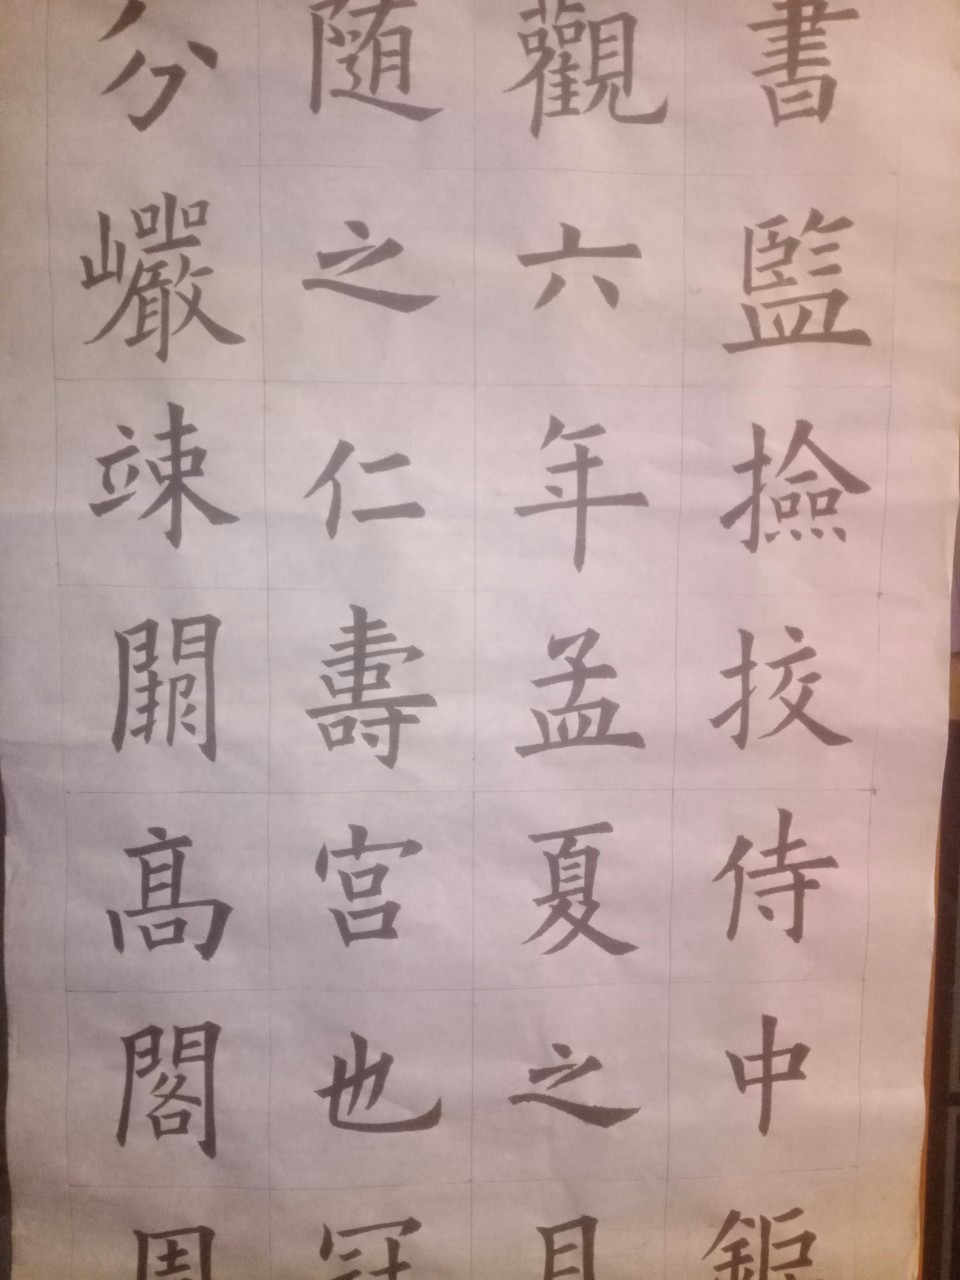 書監撿挍侍中鉅
觀六年孟夏之月
随之仁壽宮也冠
分巗竦闕髙閣周